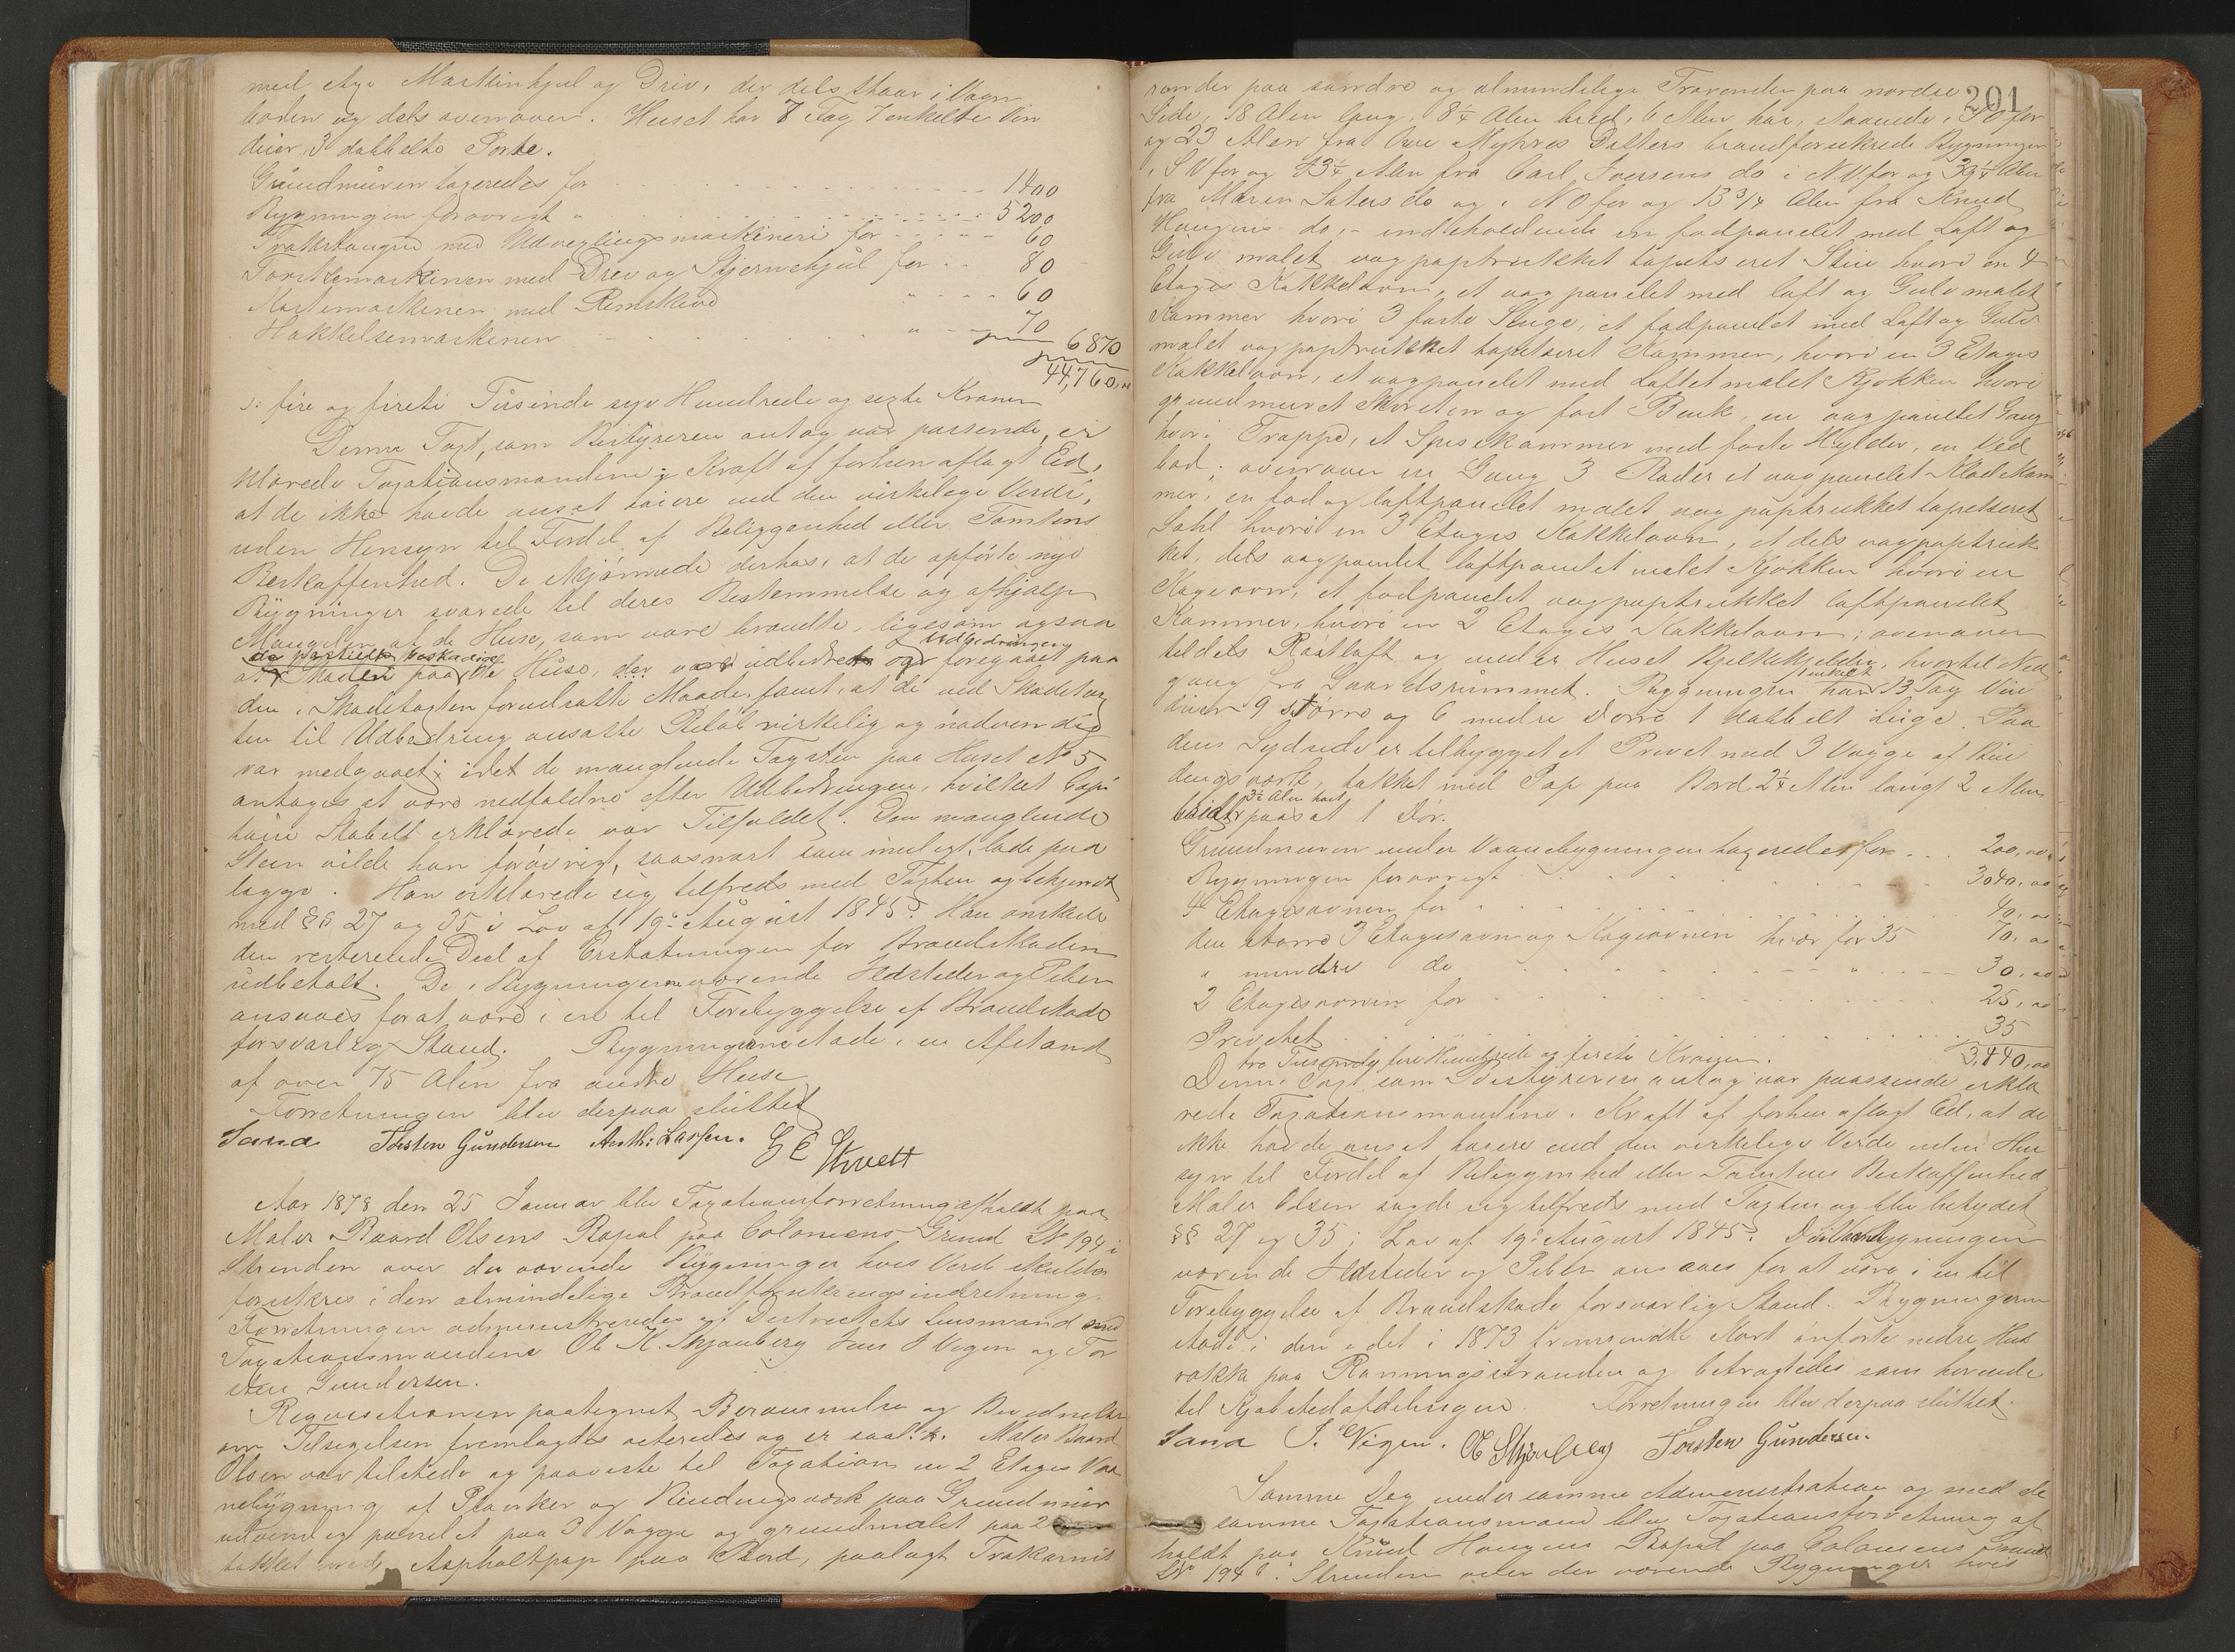 med øvre Maskinhjul og Driv, der dels staar i Vogn
boden og dels ovenover. Huset har 8 Fag 7 enkelte Vin
duer, 3 dobbelte Porte.
Grundmuren taxeredes for 1400
Bygningen forøvrigt " 5200
Trækstangen med Udvexlingsmaskineri for 60
Tærskemaskinen med Drev og Stjernehjul for 80
Kastemaskinen med Remskive " 60
Hakkelsemaskinen " 70
6870
44,760,00
ɔ: fire og firti Tusinde syv Hundrede og sexti Kroner
Denne Taxt, som Bestyreren antog var passende, er
klærede Taxationsmændene i Kraft af forhen aflagt Ed,
at de ikke havde ansat høiere end den virkelige Værdi,
uden Hensyn til Fordel af Beliggenhed eller Tomtens
Beskaffenhed. De skjønnede derhos, at de opførte nye
Bygninger svarede til deres Bestemmelse og afhjalp
Mangelen af de Huse, som vare brændte, ligesom ogsaa
de partielt beskadige Udbedringen
at Skaden paa de Huse, der var udbedret og foregaaet paa
den i Skadetaxten forudsatte Maade, samt, at de ved Skadetax
ten til Udbedring ansatte Beløb virkelig og nødvendig
var medgaaet; idet de manglende Tagsten paa Huset No 5
antages at være nedfaldne efter Udbedringen, hvilket Capi
tain Stabell erklærede var Tilfældet. Den manglende
Steen vilde han forøvrigt, saasnart som muligt, lade paa
lægge. Han erklærede sig tilfreds med Taxten og bekjendt
med §§ 27 og 35 i Lov af 19de August 1845. Han ønskede
den resterende Deel af Erstatningen for Brandskaden
udbetalt. De i Bygningerne værende Ildsteder og Piber
ansaaes for at være i en til Forebyggelse af Brandskade
forsvarlig Stand. Bygningerne stode i en Afstand
af over 75 Alen fra andre Huse
Forretningen blev derpaa sluttet
Sand Torsten Gundersen Anth: Larsen. G E Stuvett
Aar 1878 den 25 Januar blev Taxationsforretning afholdt paa
Maler Baard Olsens Bopæl paa Coloniens Grund No 194 i
Stranden over de værende Bygninger hvis Værdi skulde
forsikres i den almindelige Brandforsikringsindretning.
Forretningen administreredes af Distriktets Lensmand med
Taxationsmændene Ole K. Skjønberg Jens J Vigen og Tor
sten Gundersen.
Reqvisitionen paategnet Berammelse og Bevidnelse
om Tilsigelsen fremlagdes acteredes og er saal. Maler Baard
Olsen var tilstede og paaviste til Taxation en 2 Etages Vaa
nebygning af Planker og Bindingsværk paa Grundmur
udvendig panelet paa 3 Vægge og grundmalet paa 2
takket med Asphaltpap paa Bord, paalagt Trækarnis
201
render paa søndre og almindelige Trærender paa nordre
Side, 18 Alen lang, 8¼ Alen bred, 6 Alen høi, staaende i SO for
og 23 Alen fra Ove Myhres Datters brandforsikrede Bygninger
i SV for og 43¼ Alen fra Carl Iversens do i NV for og 39¼ Alen
fra Maren Sæters do og i NO for og 13¾ Alen fra Knud
Haugens do, – indeholdende en fodpanelet med Loft og
Gulv malet vægpaptrukket tapetseret Stue hvori en 4
Etages Kakkelovn, et vægpanelet med Loft og Gulv malet
Kammer hvori 3 faste Senge, et fodpanelet med Loft og Gulv
malet vægpaptrukket tapetseret Kammer, hvori en 3 Etages
Kakkelovn, et vægpanelet med Loftet malet Kjøkken hvori
grundmuret Skorsten og fast Bænk, en vægpanelet Gang
hvori Trappe, et Spisekammer med faste Hylder, en Ved
bod; ovenover en Gang 3 Boder et vægpanelet Klædekam
mer, en fod og loftpanelet malet vægpaptrukket tapetseret
Sahl hvori en 3 Etages Kakkelovn, et dels vægpaptruk
ket, dels vægpanelet loftpanelet malet Kjøkken hvori en
Kogeovn, et fodpanelet vægpaptrukket loftpanelet
Kammer, hvori en 2 Etages Kakkelovn; ovenover
tildels Røstloft og under Huset Bjelkekjelder, hvortil Ned
gang fra Gaardsrummet. Bygningen har 13 Fag enkelt Vin
duer 9 større og 6 mindre Døre 1 dobbelt Luge. Paa
dens Sydside er tilbygget et Privet med 3 Vægge af Bin
dingsværk, takket med Pap paa Bord 2¼ Alen langt 2 Alen
bredt 3½ Alen høit paasat 1 Dør.
Grundmuren under Vaanebygningen taxeredes for 200,00
Bygningen forøvrigt 3040,00
4 Etagesovnen for 40,00
den større 3 Etagesovn og Kogeovnen hver for 35 70,00
" mindre do " 30,00
2 Etagesovnen for 25,00
Privetet 35
tre Tusende fire Hundrede og firti Kroner. 3,440,00
Denne Taxt som Bestyreren antog var passende erklæ
rede Taxationsmændene i Kraft af forhen aflagt Ed, at de
ikke havde ansat høiere end den virkelige Værdi uden Hen
syn til Fordel af Beliggenhed eller Tomtens Beskaffenhed
Maler Olsen sagde sig tilfreds med Taxten og blev betydet
§§ 27 og 35 i Lov af 19de August 1845. De i Bygningen
værende Ildsteder og Piber ansaaes for at være i en til
Forebyggelse af Brandskade forsvarlig Stand. Bygningerne
stode i den i det i 1873 fremsendte Kort anførte nedre Hus
række paa Ranningsstranden og betragtedes som hørende
til Kjøbstedafdelingen. Forretningen blev derpaa sluttet.
Sand J. Vigen. O Skjønberg Torsten Gundersen.
Samme Dag under samme Administration og med de
samme Taxationsmænd blev Taxationsforretning af
holdt paa Knud Haugens Bopæl paa Coloniens Grund
No 194 b i Stranden over der værende Bygninger hvis